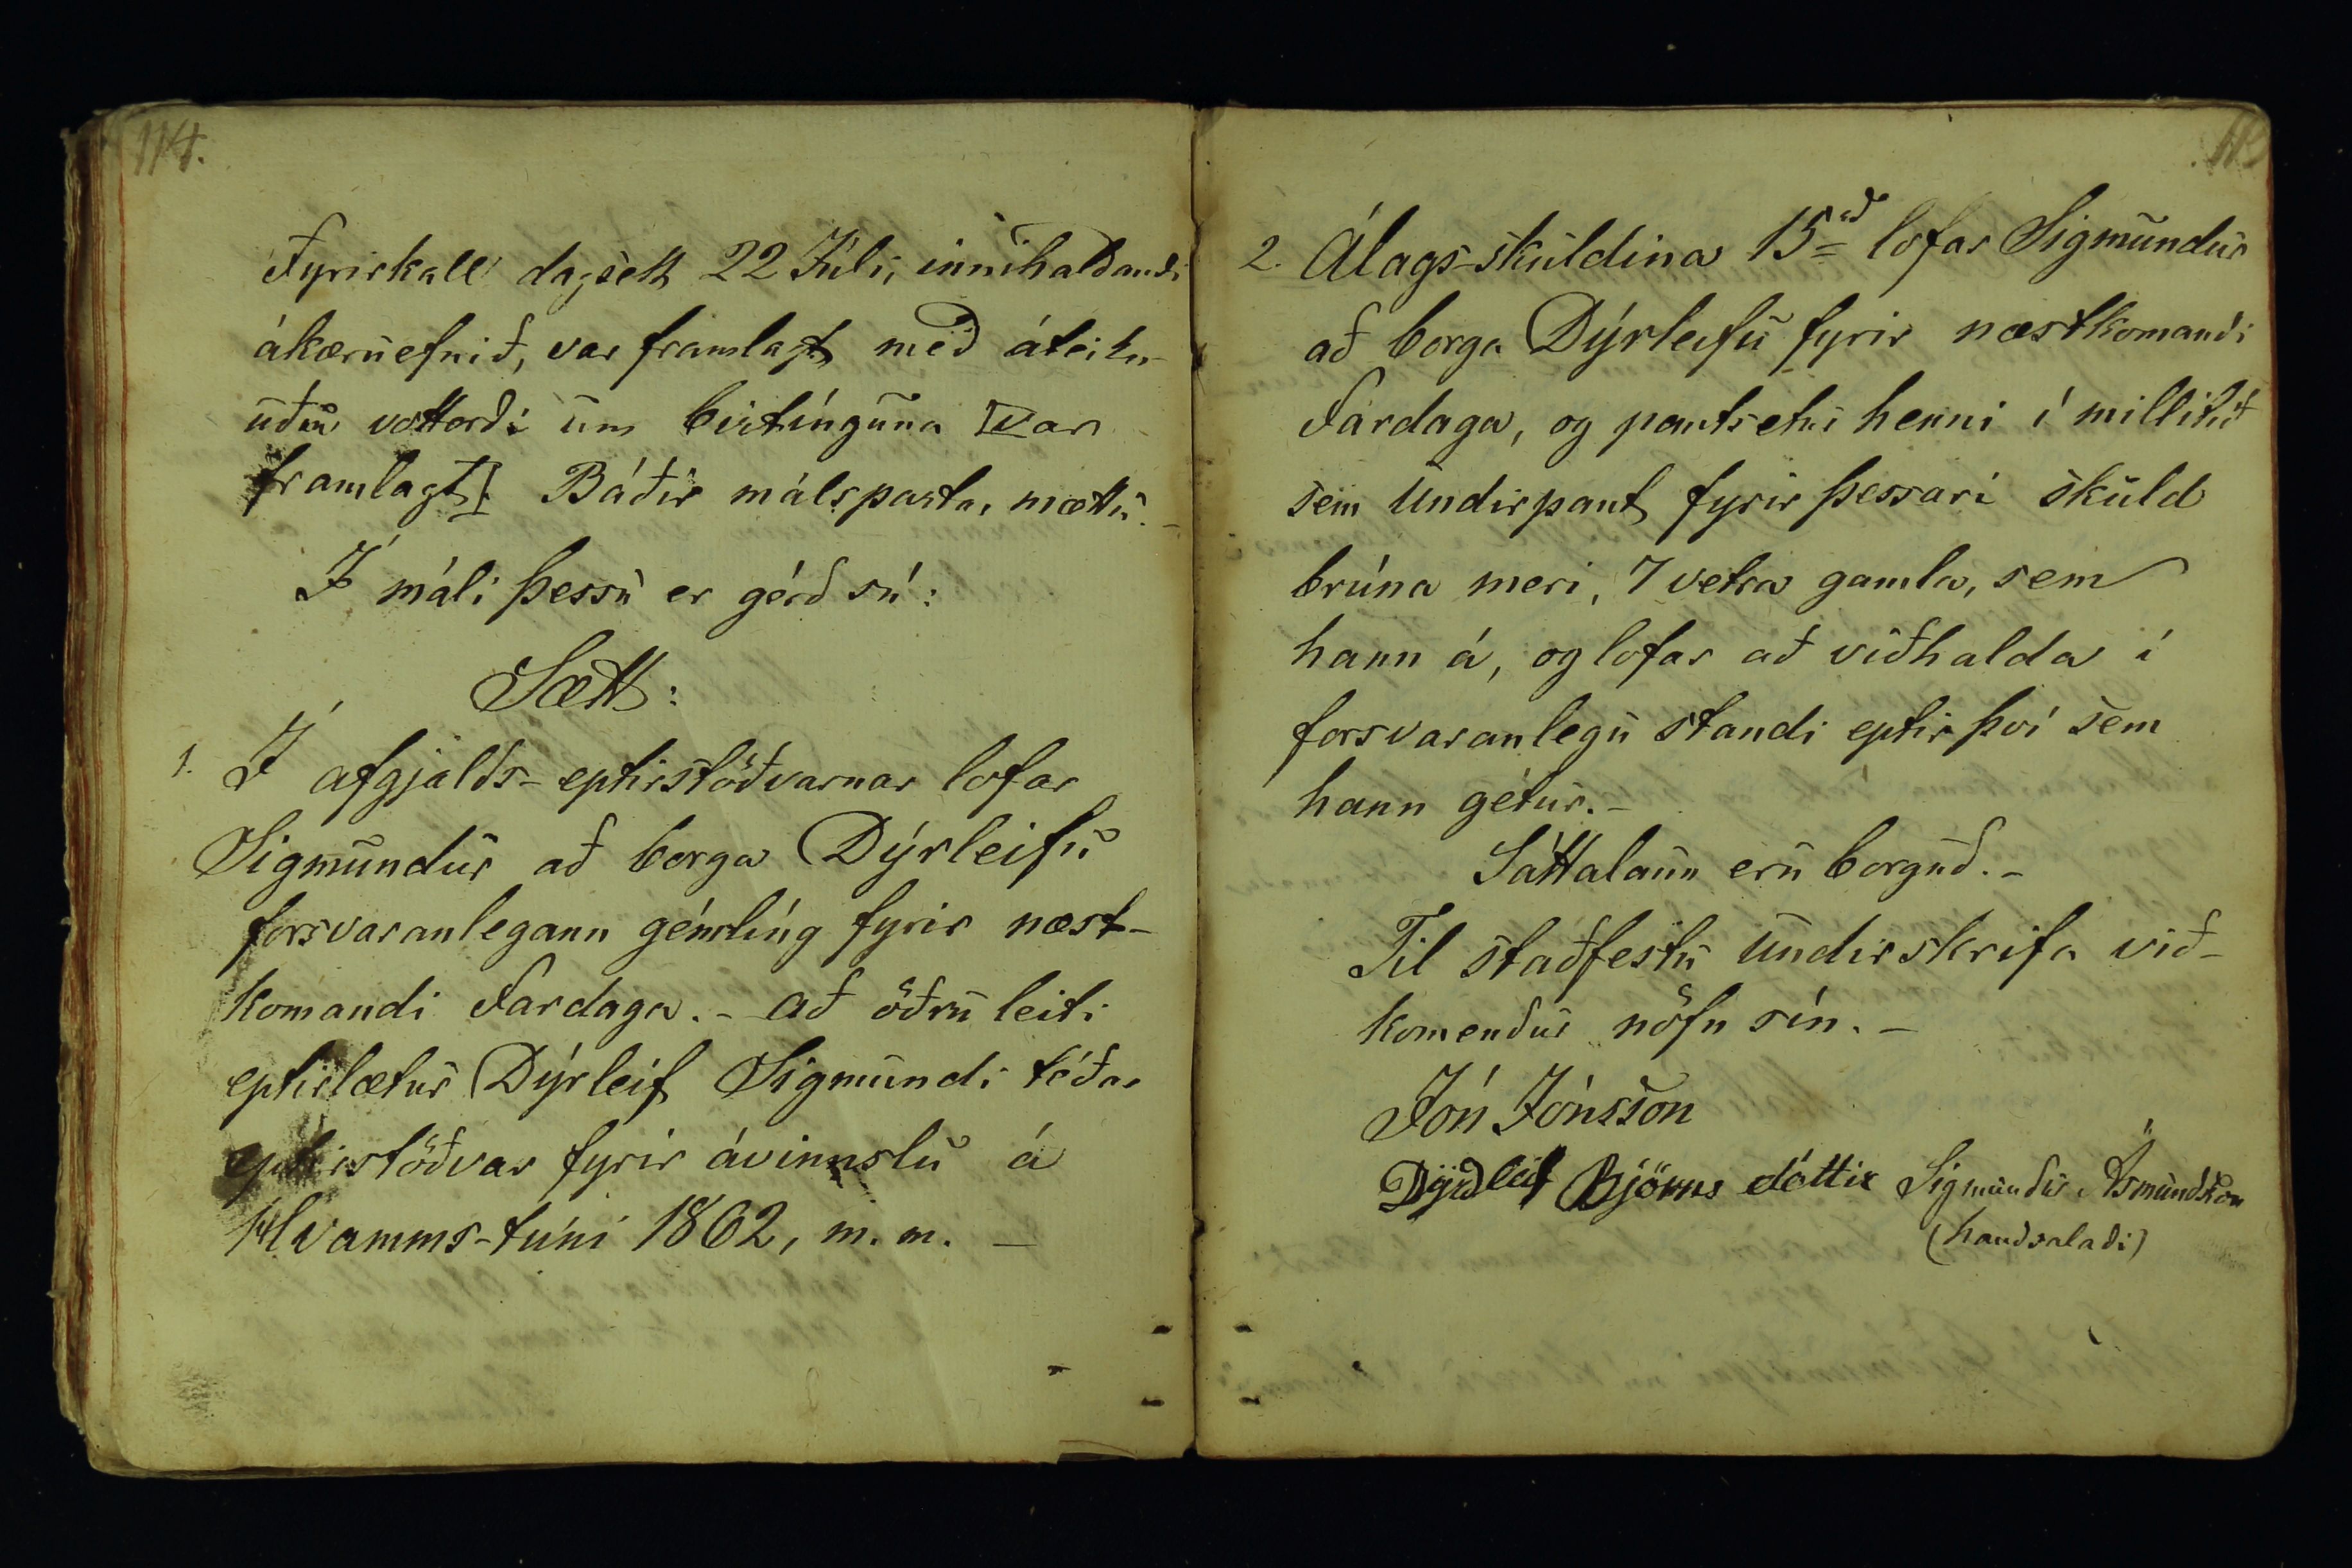 114.
Fyrirkall dagsett 22 Júlí, innihaldandi
ákæruefnið, var framlagt með áteikn-
uðu vottorði um birtínguna [var
framlagt]. Báðir málspartar mættu. -
Í máli þessu er gérð sú:
Sætt:
1. Í afgjalds-eptirstöðvarnar lofar
Sigmundur að borga Dýrleifu
forsvaranlegann gémlíng fyrir næst-
komandi Fardaga. - að öðru leiti
eptirlætur Dýrleif Sigmundi téðar
eptirstöðvar fyrir ávinnslu á
Hvamms-túni 1862, m. m. -
2. Álags-skuldina 15 rd lofar Sigmundur
að borga Dýrleifu fyrir næstkomandi
Fardaga, og pantsetur henni í millitíð
sem Undirpant fyrir þessari skuld
brúna meri, 7 vetra gamla, sem
hann á, og lofar að viðhalda í
forsvaranlegu standi eptir því sem
hann gétur. -
Sáttalaun eru borguð. -
Til staðfestu Undirskrifa við-
komendur nöfn sín. -
Jón Jónsson
Dýrleif Björns dóttir Sigmundur Ásmundsson
(handsalaði)